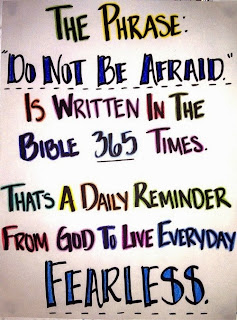 THE PHRASE:
"DO NOT BE AFRAID."
IS WRITTEN IN THE
BIBLE 365 TIMES.
THATS A DAILY REMINDER
FROM GOD TO LIVE EVERYDAY
FEARLESS.